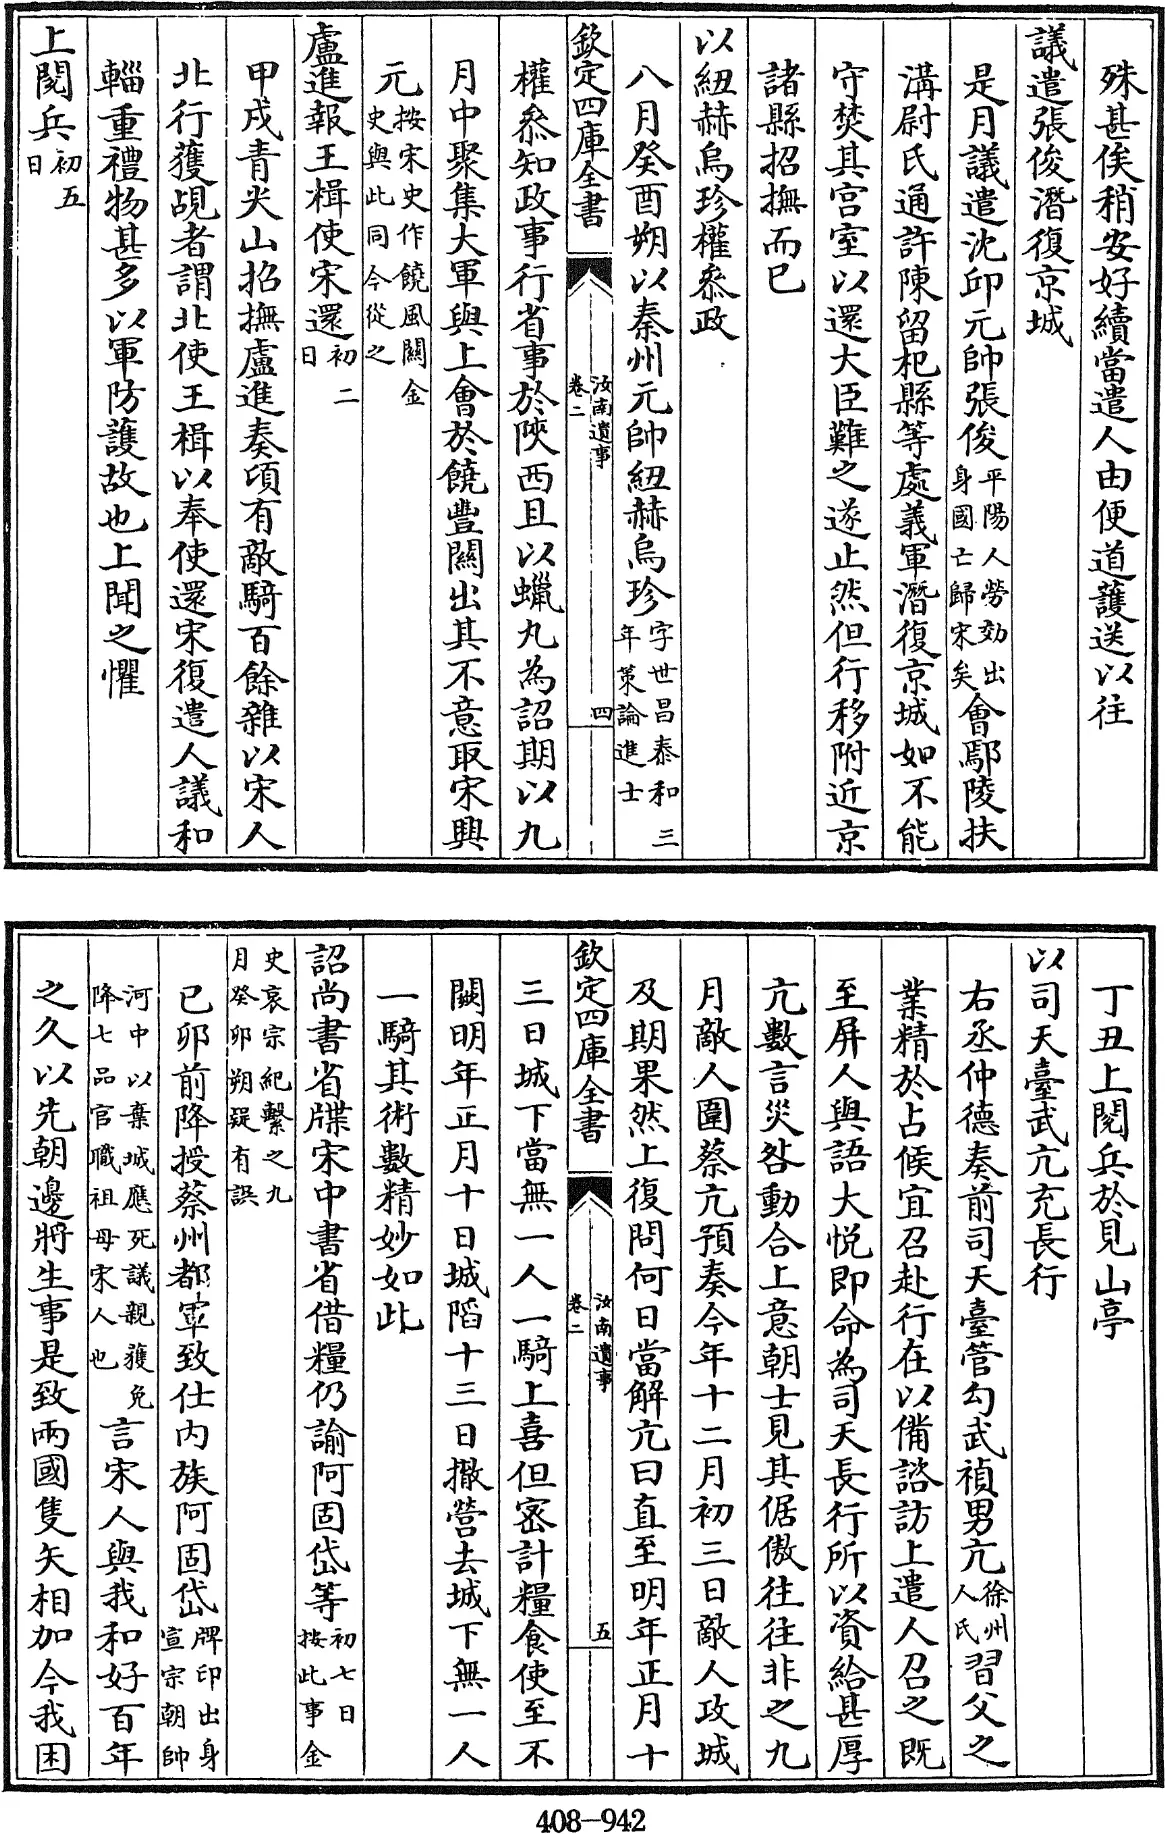 殊甚俟稍安好續當遣人由便道護送以往
議遣張俊潛復京城
是月議遣沈邱元帥張俊平陽人勞効出身國亡歸宋矣會鄢陵扶
溝尉氏通許陳留杞縣等處義軍潛復京城如不能
守焚其宮室以還大臣難之遂止然但行移附近京
諸縣招撫而已
以紐赫烏珍權叅政
八月癸酉朔以秦州元帥紐赫烏珍字世昌泰和三年策論進士
欽定四庫全書 汝南遺事 卷二 四
權叅知政事行省事於陝西且以蠟丸為詔期以九
月中聚集大軍與上會於饒豐關出其不意取宋興
元按宋史作饒風關金史與此同今從之
盧進報王楫使宋還初二日
甲戍青尖山招撫盧進奏頃有敵騎百餘雜以宋人
北行獲覘者謂北使王楫以奉使還宋復遣人議和
輜重禮物甚多以軍防護故也上聞之懼
上閱兵初五日
丁丑上閱兵於見山亭
以司天臺武亢充長行
右丞仲德奏前司天臺管勾武禎男亢徐州人氏習父之
業精於占候宜召赴行在以備諮訪上遣人召之既
至屏人與語大悅即命為司天長行所以資給甚厚
亢數言災咎動合上意朝士見其倨傲往往非之九
月敵人圍蔡亢預奏今年十二月初三日敵人攻城
及期果然上復問何日當解亢曰直至明年正月十
欽定四庫全書 汝南遺事 卷二 五
三日城下當無一人一騎上喜但密計糧食使至不
闕明年正月十日城陷十三日撤營去城下無一人
一騎其術數精妙如此
詔尚書省牒宋中書省借糧仍諭阿固岱等初七日按此事金
史哀宗紀繫之九月癸卯朔疑有誤
己卯前降授蔡州都軍致仕內族阿固岱牌印出身宣宗朝帥
河中以棄城應死議親獲免降七品官職祖母宋人也言宋人與我和好百年
之久以先朝邊將生事是致兩國隻矢相加今我困
408-942